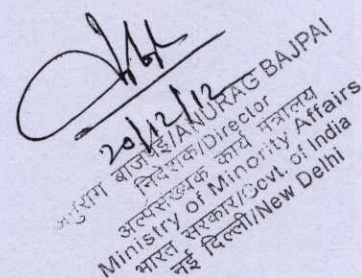 20/12/12
अनुराग बाजपेई/ANURAG BAJPAI
निदेशक/Director
अल्पसंख्यक कार्य मंत्रालय
Ministry of Minority Affairs
भारत सरकार/Govt. of India
नई दिल्ली/New Delhi